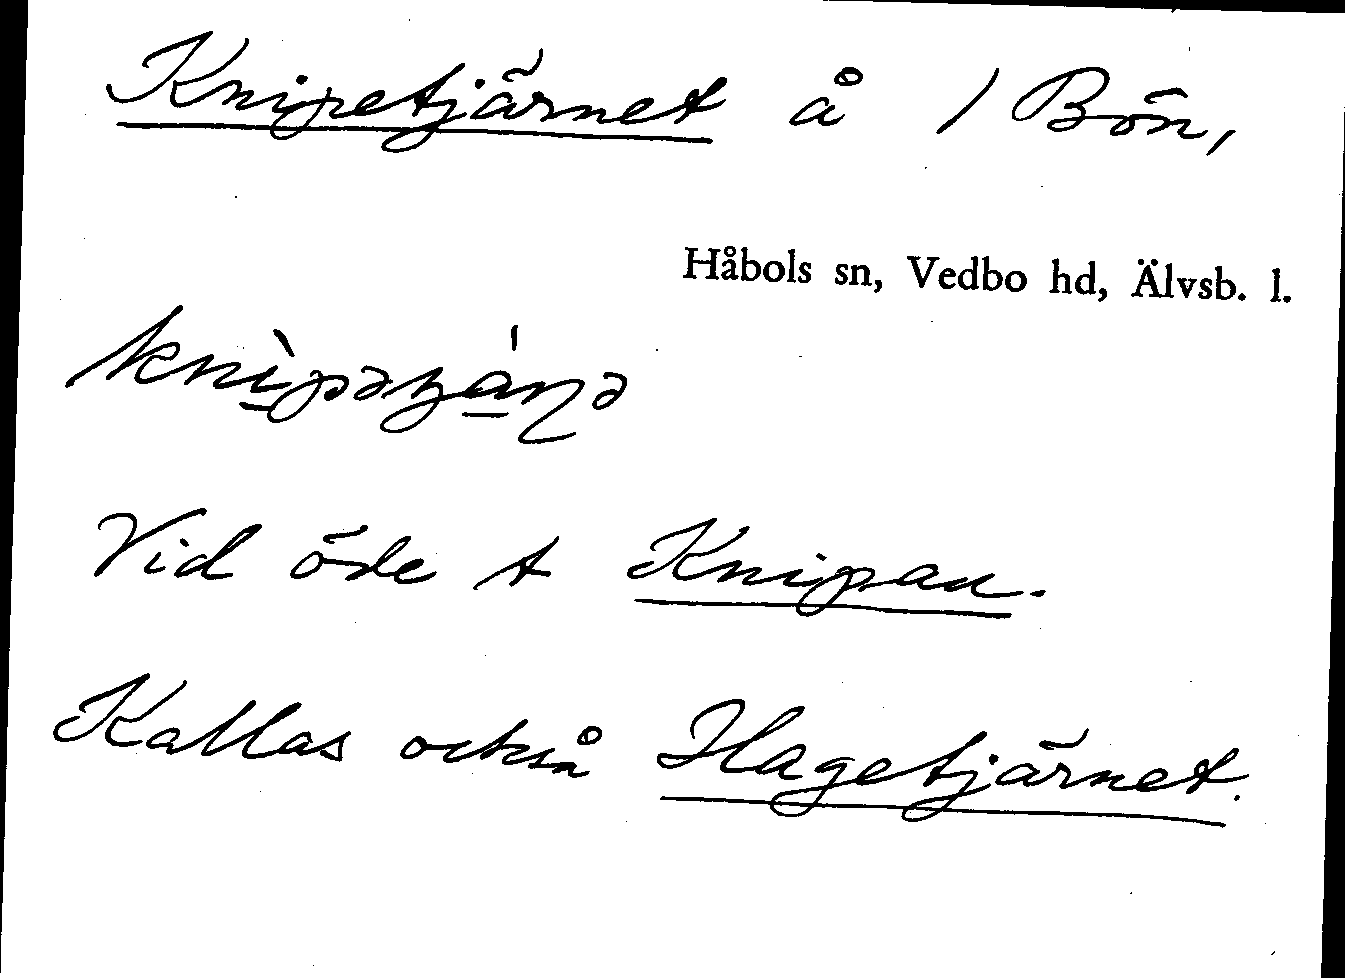 Knipetjärnet å 1 Bön,
Håbols sn, Vedbo hd, Älvsb. l.
Vid öde t Knipan.
Kallas också Hagetjärnet.